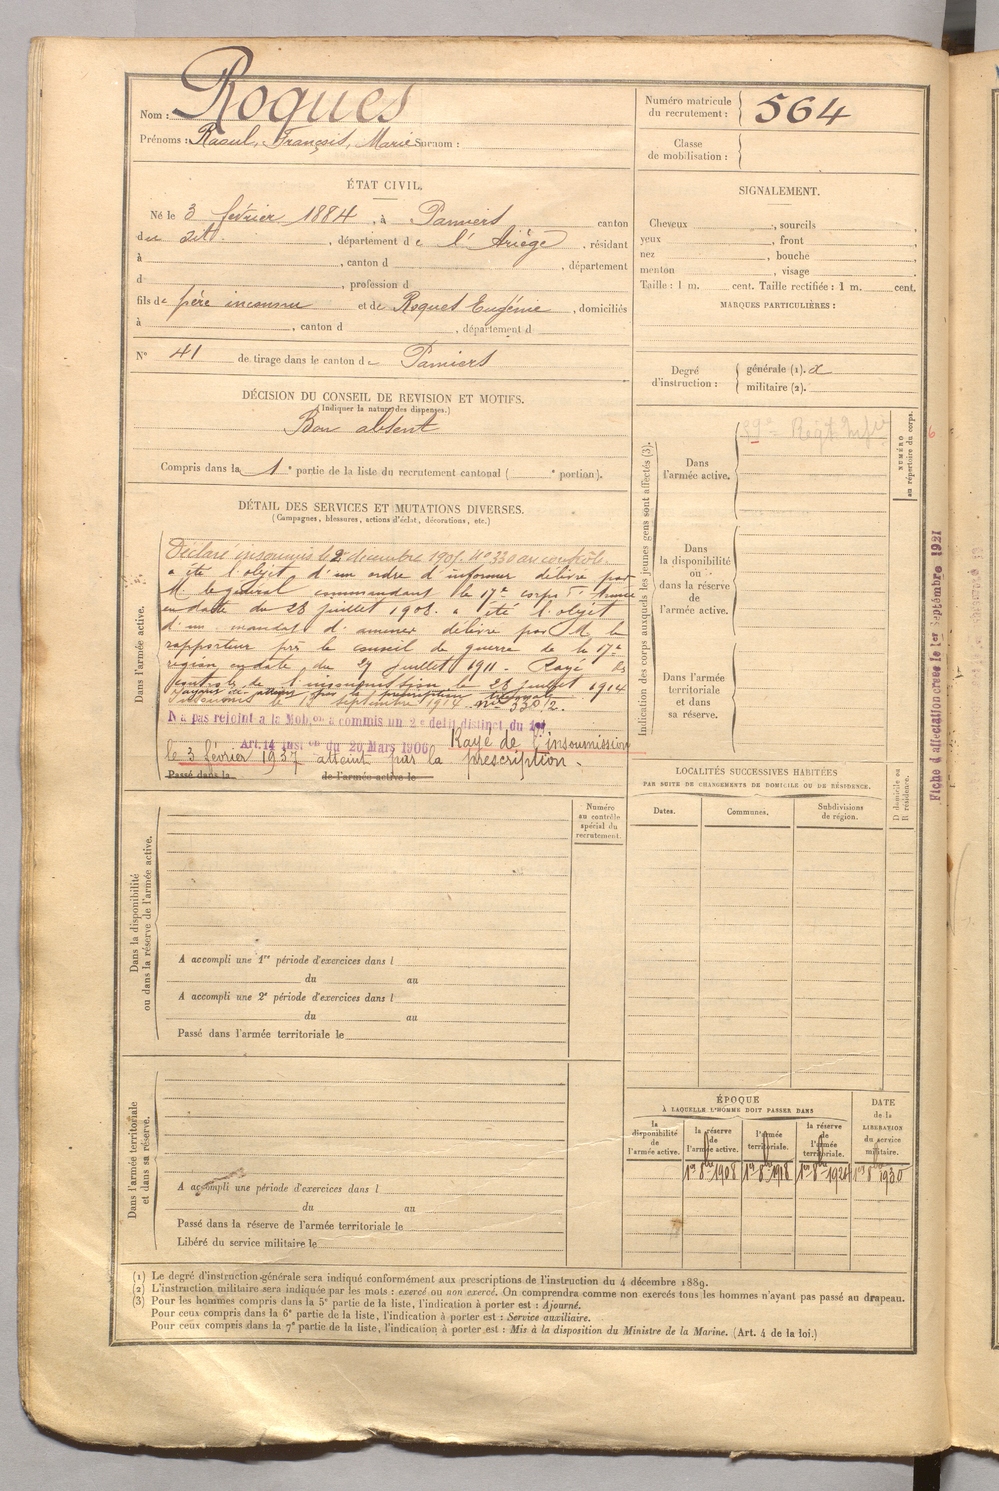 Nom : Roques
Prénoms : Raoul, François, Marie Surnom :
Numéro matricule du recrutement : 564
Classe de mobilisation :
ÉTAT CIVIL.
Né le 3 février 1884, à Pamiers canton
du dit, département de l'Ariège, résidant
à , canton d , département
d , profession d
fils de père inconnu et de Roques Eugénie, domiciliés
à , canton d , département d
N° 41 de tirage dans le canton de Pamiers
DÉCISION DU CONSEIL DE REVISION ET MOTIFS.
(Indiquer la nature des dispenses.)
Bon absent
Compris dans la 1re partie de la liste du recrutement cantonal ( e portion).
SIGNALEMENT.
Cheveux , sourcils ,
yeux , front ,
nez , bouche ,
menton , visage
Taille : 1 m. cent. Taille rectifiée : 1 m. cent.
MARQUES PARTICULIÈRES :
Degré d'instruction : générale (1). x
militaire (2).
DÉTAIL DES SERVICES ET MUTATIONS DIVERSES.
(Campagnes, blessures, actions d'éclat, décorations, etc.)
Dans l'armée active.
Déclaré insoumis le 2 décembre 1905. N° 330 au contrôle.
a été l'objet d'un ordre d'informer délivré par
M. le général commandant le 17e corps d'armée
en date du 28 juillet 1908. a été l'objet
d'un mandat d'amener délivré par M. le
rapporteur près le conseil de guerre de la 17e
région en date du 29 juillet 1911. Rayé des
contrôles de l'insoumission le 28 juillet 1914
insoumis le 15 septembre 1914 n° 330/2.
N'a pas rejoint à la Mob.on a commis un 2e délit distinct du 1er
Art. 14 Inst.on du 20 Mars 1906 Rayé de l'insoumission
le 3 février 1937 atteint par la prescription.
Passé dans la de l'armée active le
Indication des corps auxquels les jeunes gens sont affectés (3).
NUMÉRO au répertoire du corps.
Dans l'armée active. 59e Régt Infie
6
Dans la disponibilité ou dans la réserve de l'armée active.
Dans l'armée territoriale et dans sa réserve.
Fiche d'affectation créée le 1er Septembre 1921
LOCALITÉS SUCCESSIVES HABITÉES
PAR SUITE DE CHANGEMENTS DE DOMICILE OU DE RÉSIDENCE.
Dates. Communes. Subdivisions de région. D domicile ou R résidence.
Dans la disponibilité ou dans la réserve de l'armée active.
Numéro au contrôle spécial du recrutement.
A accompli une 1re période d'exercices dans l
du au
A accompli une 2e période d'exercices dans l
du au
Passé dans l'armée territoriale le
Dans l'armée territoriale et dans sa réserve.
A accompli une période d'exercices dans l
du au
Passé dans la réserve de l'armée territoriale le
Libéré du service militaire le
ÉPOQUE
À LAQUELLE L'HOMME DOIT PASSER DANS
la disponibilité de l'armée active. la réserve de l'armée active. l'armée territoriale. la réserve de l'armée territoriale. DATE de la LIBÉRATION du service militaire.
1er 8bre 1908 1er 8bre 1918 1er 8bre 1924 1er 8bre 1930
(1) Le degré d'instruction générale sera indiqué conformément aux prescriptions de l'instruction du 4 décembre 1889.
(2) L'instruction militaire sera indiquée par les mots : exercé ou non exercé. On comprendra comme non exercés tous les hommes n'ayant pas passé au drapeau.
(3) Pour les hommes compris dans la 5e partie de la liste, l'indication à porter est : Ajourné.
Pour ceux compris dans la 6e partie de la liste, l'indication à porter est : Service auxiliaire.
Pour ceux compris dans la 7e partie de la liste, l'indication à porter est : Mis à la disposition du Ministre de la Marine. (Art. 4 de la loi.)